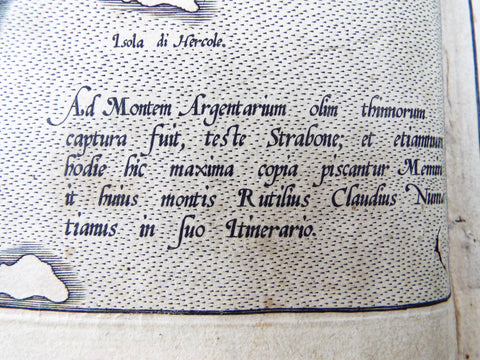 Isola di Hercole.
Ad Montem Argentarium olim thinnorum
captura fuit, teste Strabone; et etiamnum
hodie hic maxima copia piscantur Memi
it huius montis Rutilius Claudius Numa
tianus in suo Itinerario.